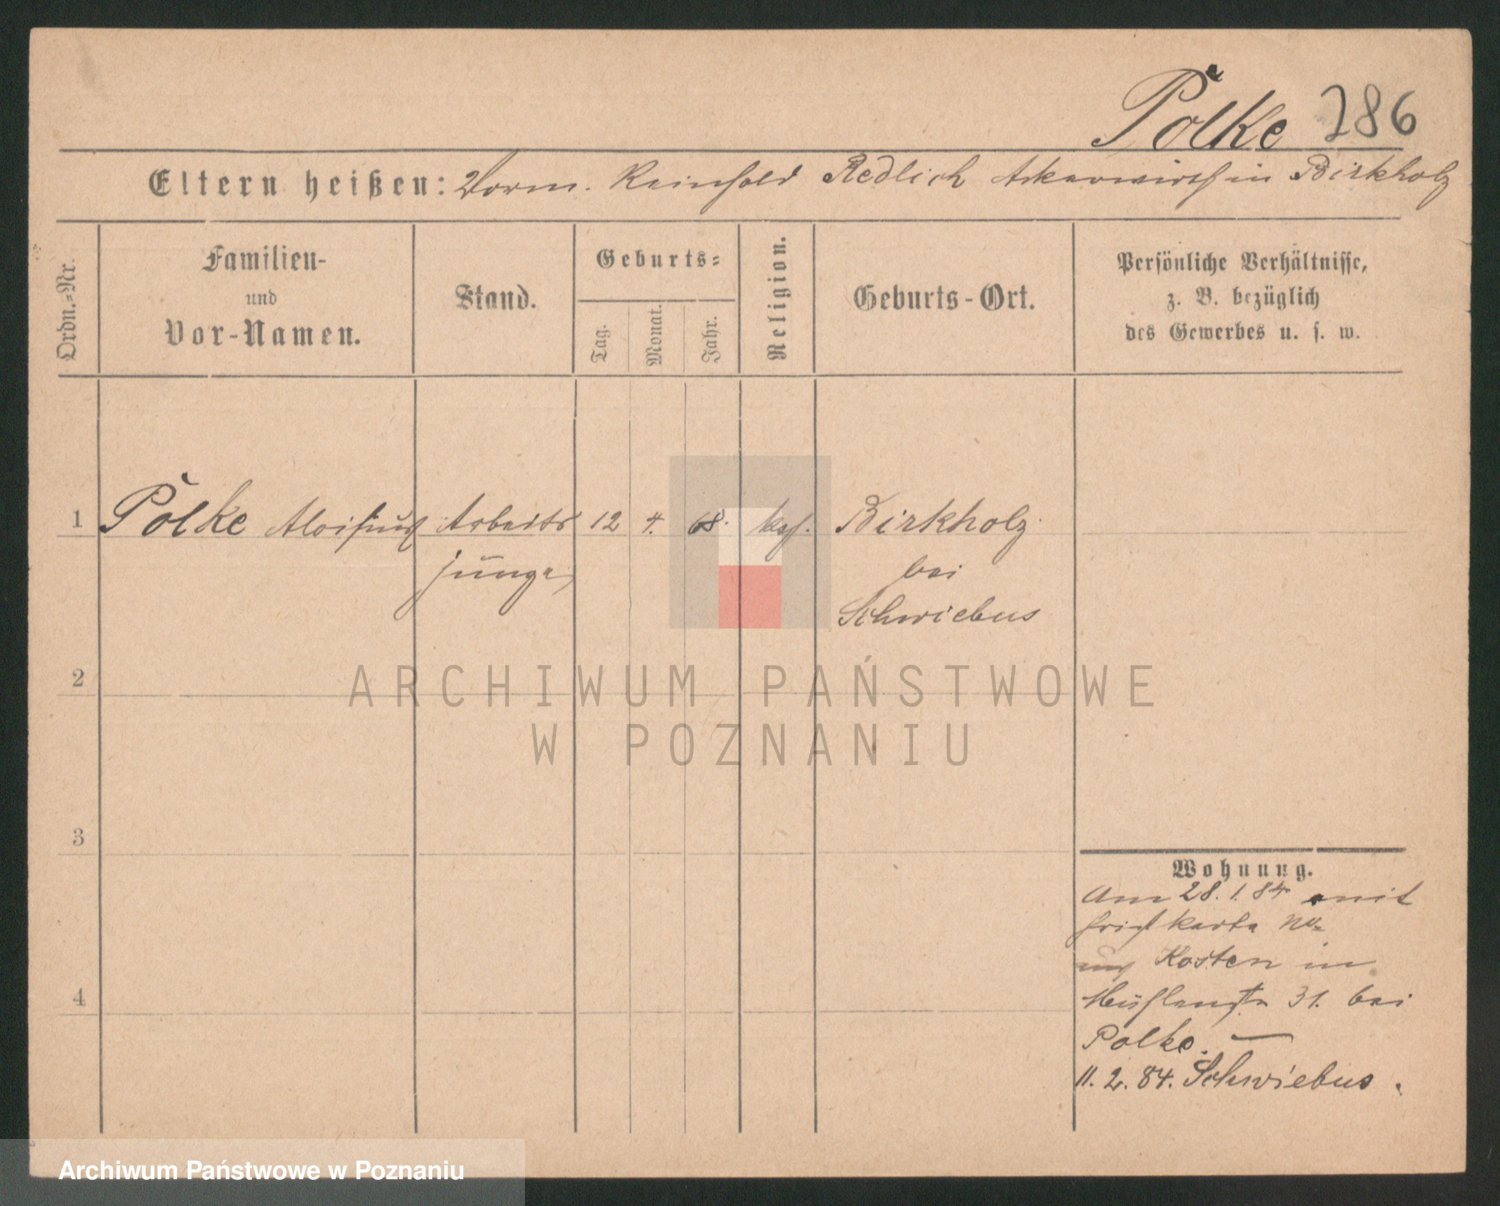 Pölke 786
Eltern heißen: Vorm. Reinhold Redlich Ackerwirth in Birkholz
Ordn.=Nr.
Familien-
und
Vor-Namen.
Stand.
Geburts=
Tag.
Monat.
Jahr.
Religion.
Geburts-Ort.
Persönliche Verhältnisse,
z. B. bezüglich
des Gewerbes u. s. w.
1 Pölke Aloisius Arbeits 12 4. 68. Birkholz
junge bei
Schwiebus
2
ARCHIWUM PAŃSTWOWE
W POZNANIU
3
Wohnung.
Am 28.1.84 mit
karte
Kosten in
4
31. bei
Polke. —
11.2.84. Schwiebus.
Archiwum Państwowe w Poznaniu